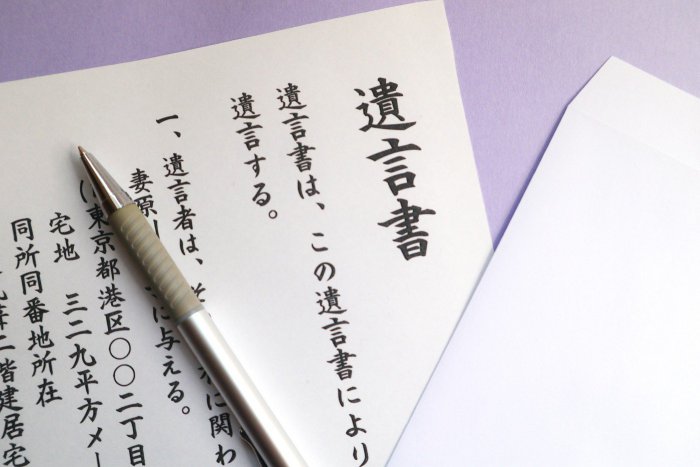 遺言書
遺言書は、この遺言書により
遺言する。
一、遺言者は、
に関わ
妻原
に与える。
東京都港区〇〇二丁目
宅地 三二九平方メー
同所同番地所在
二階建居宅